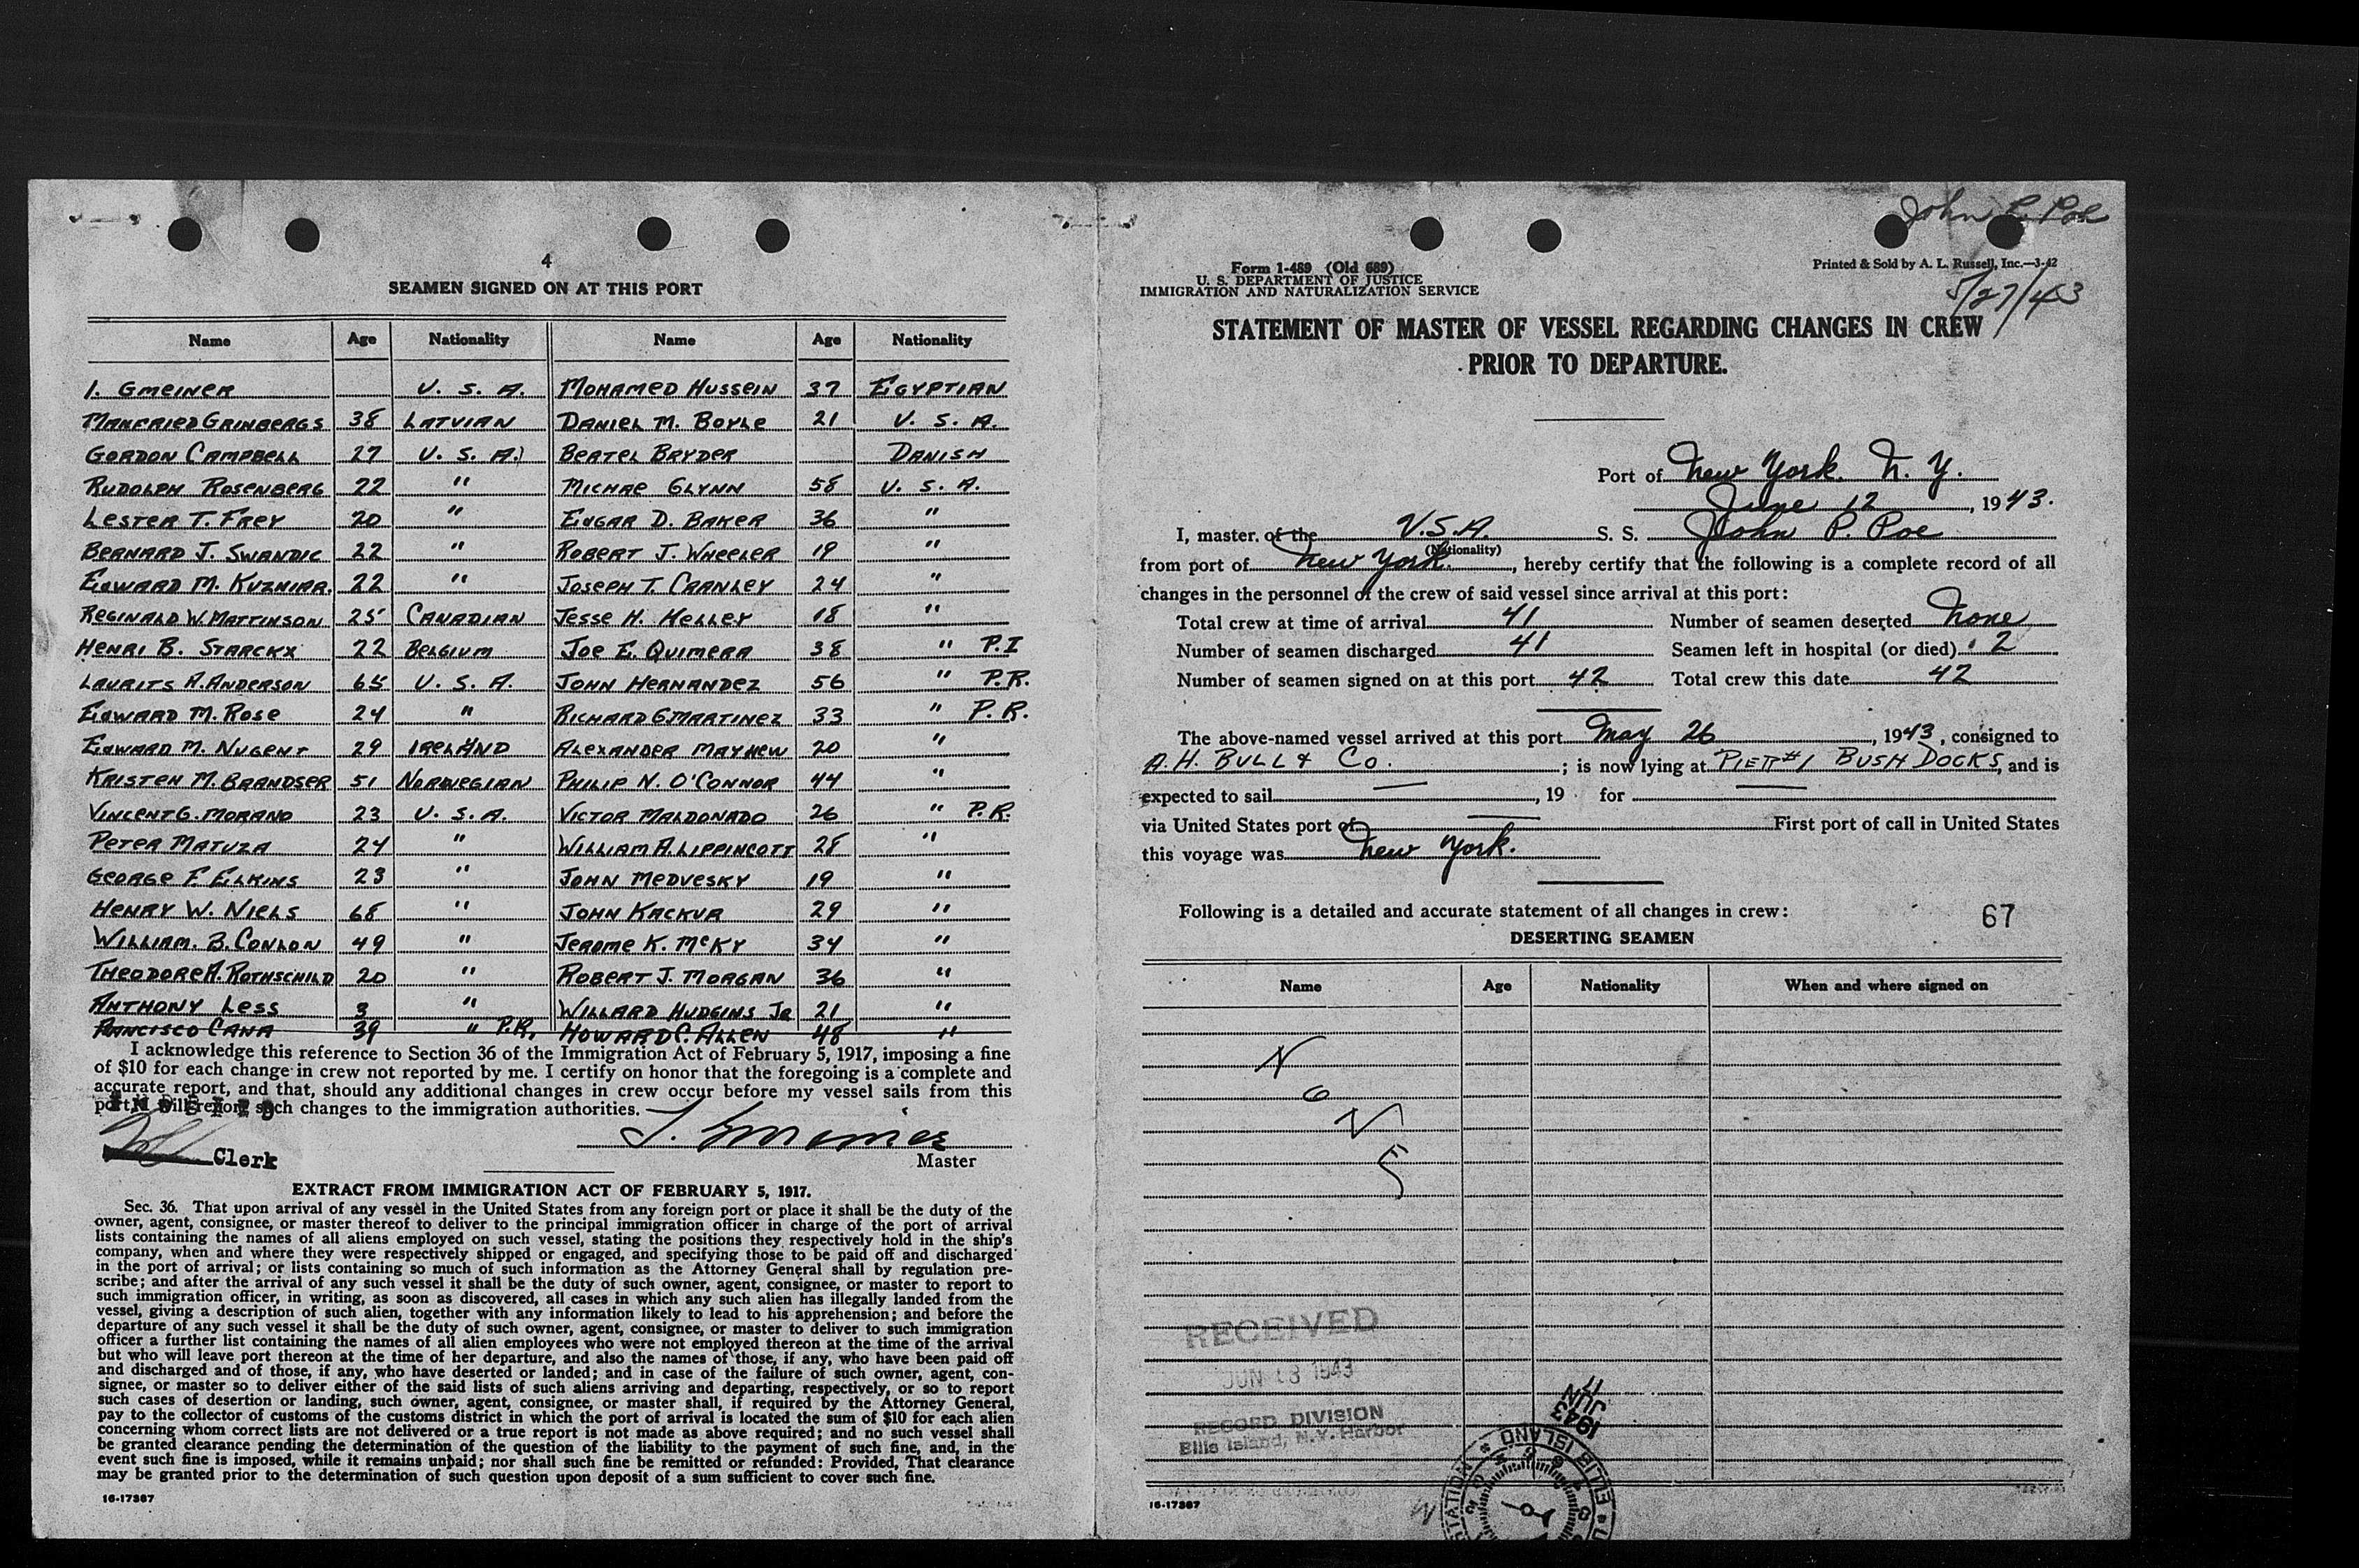 4
SEAMEN SIGNED ON AT THIS PORT
Name Age Nationality Name Age Nationality
I. GMEINER U. S. A. MOHAMED HUSSEIN 37 EGYPTIAN
MANFRIED GRINBERGS 38 LATVIAN DANIEL M. BOYLE 21 U. S. A.
GORDON CAMPBELL 27 U. S. A. BERTEL BRYDER DANISH
RUDOLPH ROSENBERG 22 " MICHAE GLYNN 58 U. S. A.
LESTER T. FREY 20 " EDGAR D. BAKER 36 "
BERNARD J. SWANDIC 22 " ROBERT J. WHEELER 19 "
EDWARD M. KUZNIAR. 22 " JOSEPH T. CRANLEY 24 "
REGINALD W. MATTINSON 25 CANADIAN JESSE H. HELLEY 18 "
HENRI B. STARCKX 22 BELGIUM JOE E. QUIMERA 38 " P.I
LAURITS A. ANDERSON 65 U. S. A. JOHN HERNANDEZ 56 " P.R.
EDWARD M. ROSE 24 " RICHARD G. MARTINEZ 33 " P.R.
EDWARD M. NUGENT 29 IRELAND ALEXANDER MAYHEW 20 "
KRISTEN M. BRANDSER 51 NORWEGIAN PHILIP N. O'CONNOR 44 "
VINCENT G. MORANO 23 U. S. A. VICTOR MALDONADO 26 " P.R.
PETER MATUZA 24 " WILLIAM A. LIPPINCOTT 28 "
GEORGE F. ELKINS 23 " JOHN MEDVESKY 19 "
HENRY W. NIELS 68 " JOHN KACKUR 29 "
WILLIAM. B. CONLON 49 " JEROME K. McKY 34 "
THEODORE A. ROTHSCHILD 20 " ROBERT J. MORGAN 36 "
ANTHONY LESS 3 " WILLARD HUDGINS JR 21 "
FRANCISCO CANA 39 " P.R. HOWARD C. ALLEN 48 "
I acknowledge this reference to Section 36 of the Immigration Act of February 5, 1917, imposing a fine
of $10 for each change in crew not reported by me. I certify on honor that the foregoing is a complete and
accurate report, and that, should any additional changes in crew occur before my vessel sails from this
port, I will report such changes to the immigration authorities.
Clerk
Master
EXTRACT FROM IMMIGRATION ACT OF FEBRUARY 5, 1917.
Sec. 36. That upon arrival of any vessel in the United States from any foreign port or place it shall be the duty of the
owner, agent, consignee, or master thereof to deliver to the principal immigration officer in charge of the port of arrival
lists containing the names of all aliens employed on such vessel, stating the positions they respectively hold in the ship's
company, when and where they were respectively shipped or engaged, and specifying those to be paid off and discharged
in the port of arrival; or lists containing so much of such information as the Attorney General shall by regulation pre-
scribe; and after the arrival of any such vessel it shall be the duty of such owner, agent, consignee, or master to report to
such immigration officer, in writing, as soon as discovered, all cases in which any such alien has illegally landed from the
vessel, giving a description of such alien, together with any information likely to lead to his apprehension; and before the
departure of any such vessel it shall be the duty of such owner, agent, consignee, or master to deliver to such immigration
officer a further list containing the names of all alien employees who were not employed thereon at the time of the arrival
but who will leave port thereon at the time of her departure, and also the names of those, if any, who have been paid off
and discharged and of those, if any, who have deserted or landed; and in case of the failure of such owner, agent, con-
signee, or master so to deliver either of the said lists of such aliens arriving and departing, respectively, or so to report
such cases of desertion or landing, such owner, agent, consignee, or master shall, if required by the Attorney General,
pay to the collector of customs of the customs district in which the port of arrival is located the sum of $10 for each alien
concerning whom correct lists are not delivered or a true report is not made as above required; and no such vessel shall
be granted clearance pending the determination of the question of the liability to the payment of such fine, and, in the
event such fine is imposed, while it remains unpaid; nor shall such fine be remitted or refunded: Provided, That clearance
may be granted prior to the determination of such question upon deposit of a sum sufficient to cover such fine.
16-17367
John P. Poe
Form 1-489 (Old 689)
U. S. DEPARTMENT OF JUSTICE
IMMIGRATION AND NATURALIZATION SERVICE
Printed & Sold by A. L. Russell, Inc.—3-42
5/27/43
STATEMENT OF MASTER OF VESSEL REGARDING CHANGES IN CREW
PRIOR TO DEPARTURE.
Port of New York. N. Y.
June 12, 1943.
I, master of the U.S.A. S. S. John P. Poe
(Nationality)
from port of New York., hereby certify that the following is a complete record of all
changes in the personnel of the crew of said vessel since arrival at this port:
Total crew at time of arrival 41 Number of seamen deserted None
Number of seamen discharged 41 Seamen left in hospital (or died) 2
Number of seamen signed on at this port 42 Total crew this date 42
The above-named vessel arrived at this port May 26, 1943, consigned to
A. H. BULL & Co. ; is now lying at PIER #1 BUSH DOCKS, and is
expected to sail —, 19 for —
via United States port of — First port of call in United States
this voyage was New York.
Following is a detailed and accurate statement of all changes in crew:
67
DESERTING SEAMEN
Name Age Nationality When and where signed on
N
O
N
E
RECEIVED
JUN 18 1943
RECORD DIVISION
Ellis Island, N.Y. Harbor
JUN
1943
ELLIS ISLAND
16-17367